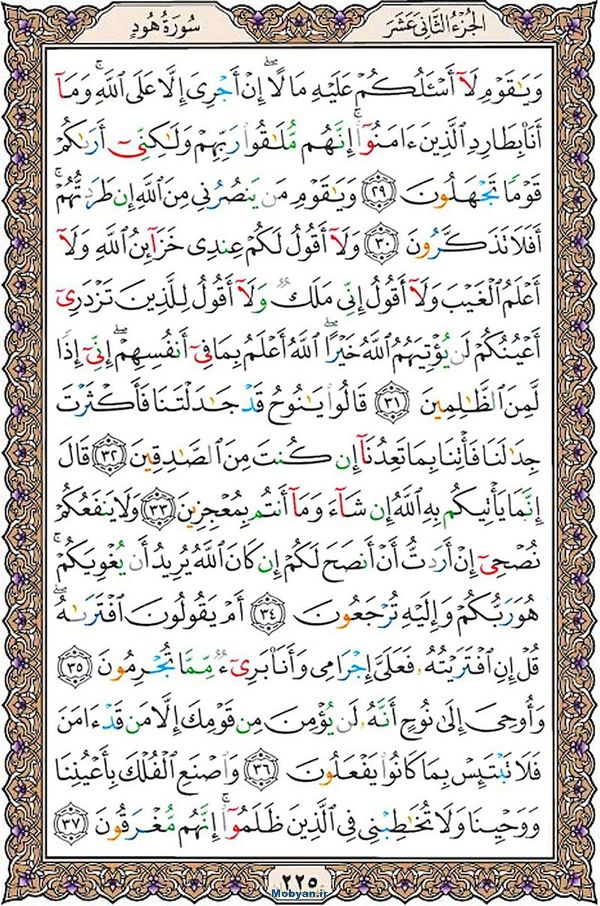 الجُزءُ الثَّانِی عَشَر
سُورَةُ هُودٍ
وَيَٰقَوۡمِ لَآ أَسۡـَٔلُكُمۡ عَلَيۡهِ مَالًاۖ إِنۡ أَجۡرِىَ إِلَّا عَلَى ٱللَّهِۚ وَمَآ
أَنَا۠ بِطَارِدِ ٱلَّذِينَ ءَامَنُوٓاْۚ إِنَّهُم مُّلَٰقُواْ رَبِّهِمۡ وَلَٰكِنِّىٓ أَرَىٰكُمۡ
قَوۡمًا تَجۡهَلُونَ ٢٩ وَيَٰقَوۡمِ مَن يَنصُرُنِى مِنَ ٱللَّهِ إِن طَرَدتُّهُمۡۚ
أَفَلَا تَذَكَّرُونَ ٣٠ وَلَآ أَقُولُ لَكُمۡ عِندِى خَزَآئِنُ ٱللَّهِ وَلَآ
أَعۡلَمُ ٱلۡغَيۡبَ وَلَآ أَقُولُ إِنِّى مَلَكٌ وَلَآ أَقُولُ لِلَّذِينَ تَزۡدَرِىٓ
أَعۡيُنُكُمۡ لَن يُؤۡتِيَهُمُ ٱللَّهُ خَيۡرًاۖ ٱللَّهُ أَعۡلَمُ بِمَا فِىٓ أَنفُسِهِمۡۖ إِنِّىٓ إِذًا
لَّمِنَ ٱلظَّٰلِمِينَ ٣١ قَالُواْ يَٰنُوحُ قَدۡ جَٰدَلۡتَنَا فَأَكۡثَرۡتَ
جِدَٰلَنَا فَأۡتِنَا بِمَا تَعِدُنَآ إِن كُنتَ مِنَ ٱلصَّٰدِقِينَ ٣٢ قَالَ
إِنَّمَا يَأۡتِيكُم بِهِ ٱللَّهُ إِن شَآءَ وَمَآ أَنتُم بِمُعۡجِزِينَ ٣٣ وَلَا يَنفَعُكُمۡ
نُصۡحِىٓ إِنۡ أَرَدتُّ أَنۡ أَنصَحَ لَكُمۡ إِن كَانَ ٱللَّهُ يُرِيدُ أَن يُغۡوِيَكُمۡۚ
هُوَ رَبُّكُمۡ وَإِلَيۡهِ تُرۡجَعُونَ ٣٤ أَمۡ يَقُولُونَ ٱفۡتَرَىٰهُۖ
قُلۡ إِنِ ٱفۡتَرَيۡتُهُۥ فَعَلَىَّ إِجۡرَامِى وَأَنَا۠ بَرِىٓءٌ مِّمَّا تُجۡرِمُونَ ٣٥
وَأُوحِىَ إِلَىٰ نُوحٍ أَنَّهُۥ لَن يُؤۡمِنَ مِن قَوۡمِكَ إِلَّا مَن قَدۡ ءَامَنَ
فَلَا تَبۡتَئِسۡ بِمَا كَانُواْ يَفۡعَلُونَ ٣٦ وَٱصۡنَعِ ٱلۡفُلۡكَ بِأَعۡيُنِنَا
وَوَحۡيِنَا وَلَا تُخَٰطِبۡنِى فِى ٱلَّذِينَ ظَلَمُوٓاْۚ إِنَّهُم مُّغۡرَقُونَ ٣٧
٢٢٥
Mobyan.ir